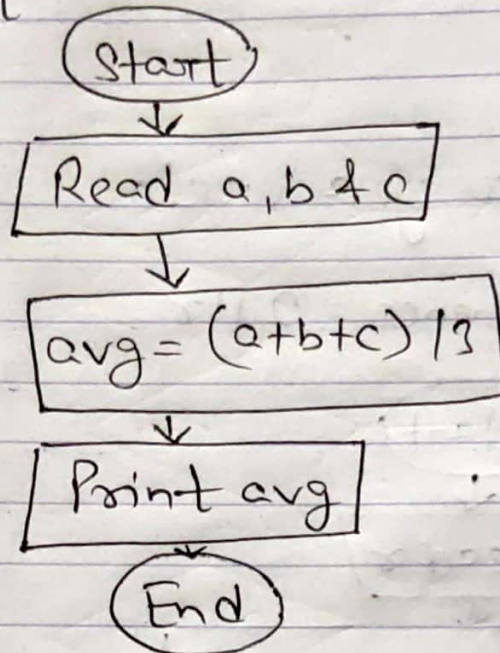 Start
Read a, b & c
avg = (a+b+c) / 3
Print avg
End